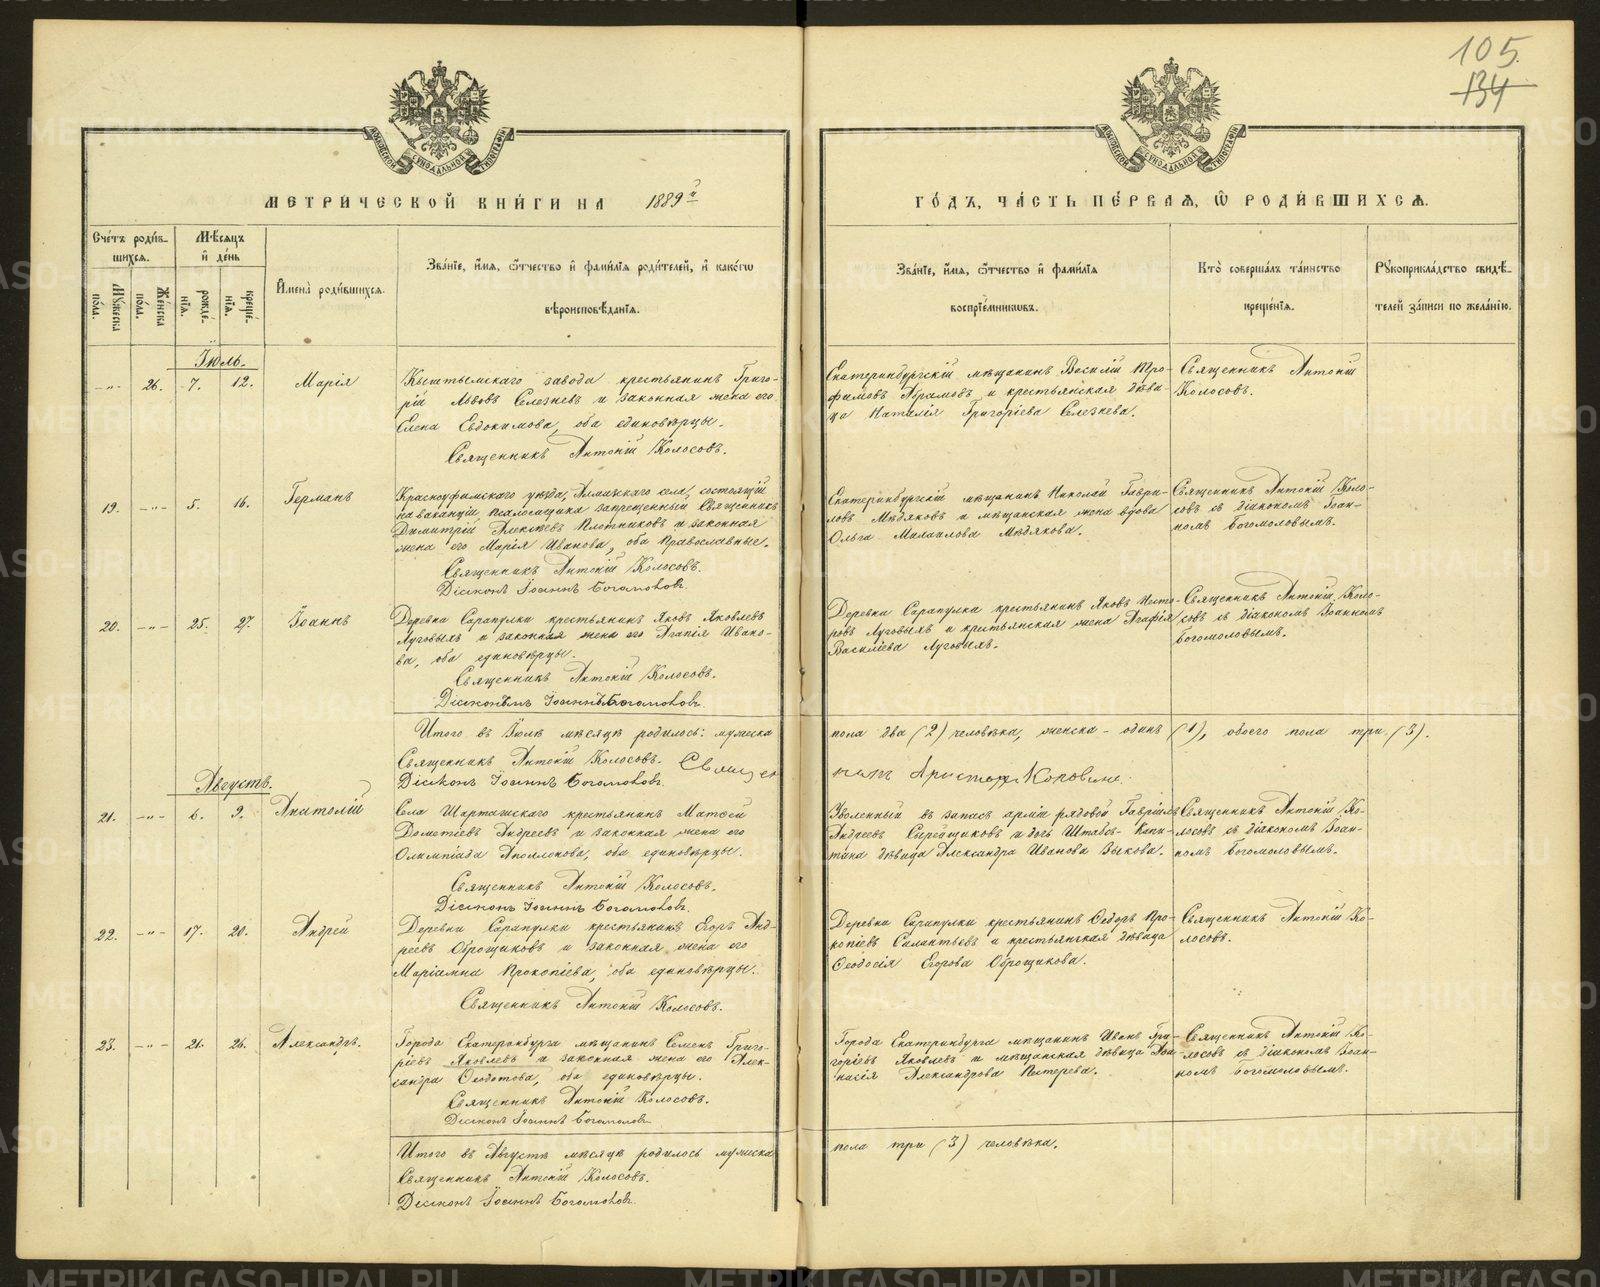 105.
134
МОСКОВСКОЙ СУНОДАЛЬНОЙ ТИПОГРАФІИ
МОСКОВСКОЙ СУНОДАЛЬНОЙ ТИПОГРАФІИ
МЕТРИ́ЧЕСКОЙ КНИ́ГИ НА 1889й
ГО́ДЪ, ЧА́СТЬ ПЕ́РВАЯ, Ѡ҆ РОДИ́ВШИХСЯ.
Сче́тъ роди́в-
шихся.
Мꙋжеска по́ла.
Же́нска по́ла.
Мѣ́сяцъ
и҆ де́нь
рожде́-
нїя.
креще́-
нїя.
И҆мена̀ роди́вшихся.
Зва́нїе, и҆́мя, ѻ҆́тчество и҆ фами́лїя роди́телей, и҆ како́гѡ
вѣроисповѣ́данїя.
Зва́нїе, и҆́мя, ѻ҆́тчество и҆ фами́лїя
воспрїе́мникѡвъ.
Кто̀ соверша́лъ та́инство
креще́нїя.
Рꙋкоприкла́дство свидѣ́-
телей за́писи по жела́нїю.
Іюль.
-„- 26. 7. 12. Марія
Кыштымскаго завода крестьянинъ Григо-
рій Львовъ Селезневъ и законная жена его
Елена Евдокимова, оба единовѣрцы.
Священникъ Антоній Колосовъ.
Екатеринбургскій мѣщанинъ Василій Тро-
фимовъ Абрамовъ и крестьянская дѣви-
ца Наталія Григоріева Селезнева.
Священникъ Антоній
Колосовъ.
19. -„- 5. 16. Германъ
Красноуфимскаго уѣзда, села, состоящій
на ваканціи псаломщика запрещенный Священникъ
Димитрій Алексѣевъ Плотниковъ и законная
жена его Марія Иванова, оба православные.
Священникъ Антоній Колосовъ.
Діаконъ Іоаннъ Богомоловъ.
Екатеринбургскій мѣщанинъ Николай Гаври-
ловъ Мѣдяковъ и мѣщанская жена вдова
Ольга Михаилова Мѣдякова.
Священникъ Антоній Коло-
совъ съ діакономъ Іоан-
номъ Богомоловымъ.
20. -„- 25. 27. Іоаннъ
Деревни Сарапулки крестьянинъ Яковъ Яковлевъ
Луговыхъ и законная жена его Агапія Ивано-
ва, оба единовѣрцы.
Священникъ Антоній Колосовъ.
Діаконъ Іоаннъ Богомоловъ.
Деревни Сарапулки крестьянинъ Яковъ Несто-
ровъ Луговыхъ и крестьянская жена Агафія
Василіева Луговыхъ.
Священникъ Антоній Коло-
совъ съ діакономъ Іоанномъ
Богомоловымъ.
Итого въ Іюлѣ мѣсяцѣ родилось: мужеска
пола два (2) человѣка, женска - одинъ (1), обоего пола три (3).
Священникъ Антоній Колосовъ. Священ
никъ Аристархъ Коровинъ.
Діаконъ Іоаннъ Богомоловъ.
Августъ.
21. -„- 6. 9. Анатолій
Села Шарташскаго крестьянинъ Матѳей
Дометіевъ Андреевъ и законная жена его
Олимпіада Аполлонова, оба единовѣрцы.
Священникъ Антоній Колосовъ.
Діаконъ Іоаннъ Богомоловъ.
Уволенный въ запасъ арміи рядовой Гавріилъ
Андреевъ Сырейщиковъ и дочь Штабсъ-Капи-
тана дѣвица Александра Иванова Зыкова.
Священникъ Антоній Ко-
лосовъ съ діакономъ Іоан-
номъ Богомоловымъ.
22. -„- 17. 20. Андрей
Деревни Сарапулки крестьянинъ Егоръ Анд-
реевъ Оброщиковъ и законная жена его
Маріамна Прокопіева, оба единовѣрцы.
Священникъ Антоній Колосовъ.
Деревни Сарапулки крестьянинъ Ѳедоръ Про-
копіевъ Силантьевъ и крестьянская дѣвица
Ѳеодосія Егорова Оброщикова.
Священникъ Антоній Ко-
лосовъ.
23. -„- 21. 26. Александръ.
Города Екатеринбурга мѣщанинъ Семенъ Григо-
ріевъ Яковлевъ и законная жена его Алек-
сандра Ѳедотова, оба единовѣрцы.
Священникъ Антоній Колосовъ.
Діаконъ Іоаннъ Богомоловъ.
Города Екатеринбурга мѣщанинъ Иванъ Гри-
горіевъ Яковлевъ и мѣщанская дѣвица Аѳа-
насія Александрова Пестерева.
Священникъ Антоній Ко-
лосовъ съ діакономъ Іоан-
номъ Богомоловымъ.
Итого въ Августѣ мѣсяцѣ родилось мужеска
пола три (3) человѣка.
Священникъ Антоній Колосовъ.
Діаконъ Іоаннъ Богомоловъ.
METRIKI.GASO-URAL.RU